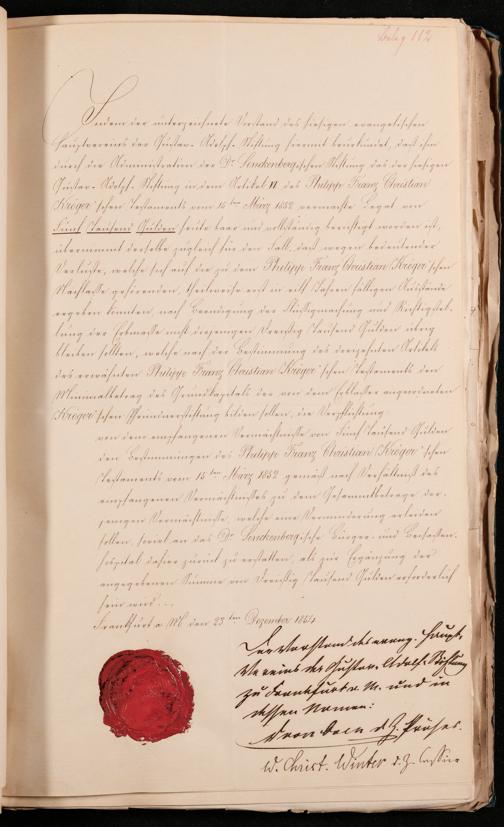 Beleg 112
Indem der unterzeichnete Vorstand des hiesigen evangelischen
Hauptvereins der Gustav-Adolph-Stiftung hiermit beurkundet, daß ihm
durch die Administration der Dr. Senckenbergischen Stiftung das der hiesigen
Gustav-Adolph-Stiftung in dem Artikel VI des Philipp Franz Christian
Kröger'schen Testaments vom 15ten März 1852 vermachte Legat von
Fünf Tausend Gulden heute baar und vollständig bereinigt worden ist,
übernimmt derselbe zugleich für den Fall, daß wegen bedeutender
Verluste, welche sich auf die zu dem Philipp Franz Christian Kröger'schen
Nachlasse gehörenden, theilweise erst in elf Jahren fälligen Ausstände
ergeben könnten, nach Beendigung der Flüssigmachung und Richtigstel-
lung der Erbmasse nicht diejenigen Dreißig Tausend Gulden übrig
bleiben sollten, welche nach der Bestimmung des dreizehnten Artikels
des erwähnten Philipp Franz Christian Kröger'schen Testaments den
Minimalbetrag des Grundkapitals der von dem Erblasser angeordneten
Kröger'schen Pfründnerstiftung bilden sollen, die Verpflichtung
von dem empfangenen Vermächtnisse von Fünf Tausend Gulden
den Bestimmungen des Philipp Franz Christian Kröger'schen
Testaments vom 15ten März 1852 gemäß nach Verhältniß des
empfangenen Vermächtnisses zu dem Gesammtbetrage der-
jenigen Vermächtnisse, welche eine Verminderung erleiden
sollen, soviel an das Dr. Senckenberg.ische Bürger- und Beisassen-
hospital dahier zurück zu erstatten, als zur Ergänzung der
angegebenen Summe von Dreißig Tausend Gulden erforderlich
sein wird.
Frankfurt a M den 23ten Dezember 1854
Der Vorstand des evang. Haupt-
Vereins der Gustav-Adolf-Stiftung
zu Frankfurt a. M. und in
dessen Namen:
d. Z. Präses.
W. Christ. Winter d. Z. Cassier